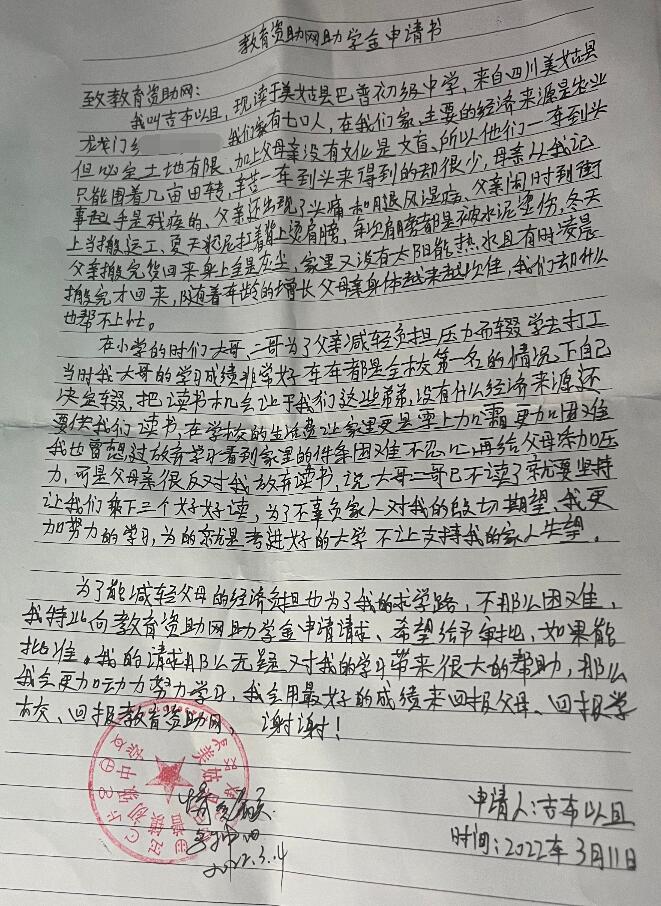 教育资助网助学金申请书
致教育资助网：
我叫吉布以且，现读于美姑县巴普初级中学，来自四川美姑县
龙门 我们家有七口人，在我们家，主要的经济来源是农业
但必定土地有限、加上父母亲没有文化是文盲、所以他们一年到头
只能围着几亩田转，辛苦一年到头来得到的却很少，母亲从我记
事起手是残疾的、父亲还出现了头痛和腿风湿病、父亲闲时到街
上当搬运工、夏天水泥扛着背上烫肩膀，每次肩膀都是被水泥烫伤，冬天
父亲搬完货回来身上全是灰尘，家里又没有太阳能热水且有时凌晨
搬完才回来，随着年龄的增长父母亲身体越来越欠佳，我们却什么
也帮不上忙。
在小学的时们大哥、二哥为了父亲减轻负担压力而辍学去打工
当时我大哥的学习成绩非常好年年都是全校第一名的情况下自己
决定辍，把读书机会让于我们这些弟弟，没有什么经济来源还
要供我们读书，在学校的生活费让家里更是雪上加霜更加困难
我也曾想过放弃学习看到家里的件条困难不忍心再给父母添加压
力，可是父母亲很反对我放弃读书，说大哥二哥已不读了就要坚持
让我们剩下三个好好读，为了不辜负家人对我的殷切期望、我更
加努力的学习，为的就是考进好的大学不让支持我的家人失望。
为了能减轻父母的经济负担也为了我的求学路，不那么困难，
我特此向教育资助网助学金申请请求、希望给予审批，如果能
批准。我的请求那么无疑对我的学习带来很大的帮助，那么
我会更加动力努力学习，我会用最好的成绩来回报父母、回报学
校、回报教育资助网、谢谢！
情况属实
2022.3.14
申请人：吉布以且
时间：2022年3月11日